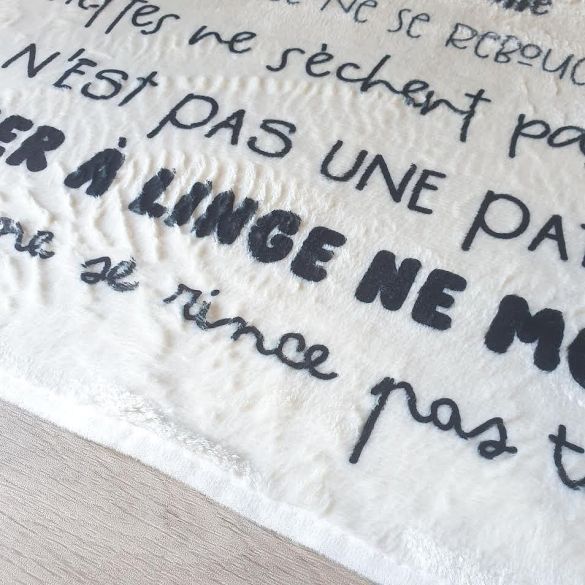 NE SE REBOUC
ne sèchent pa
N'EST PAS UNE PAT
ER À LINGE NE MO
re se rince pas t